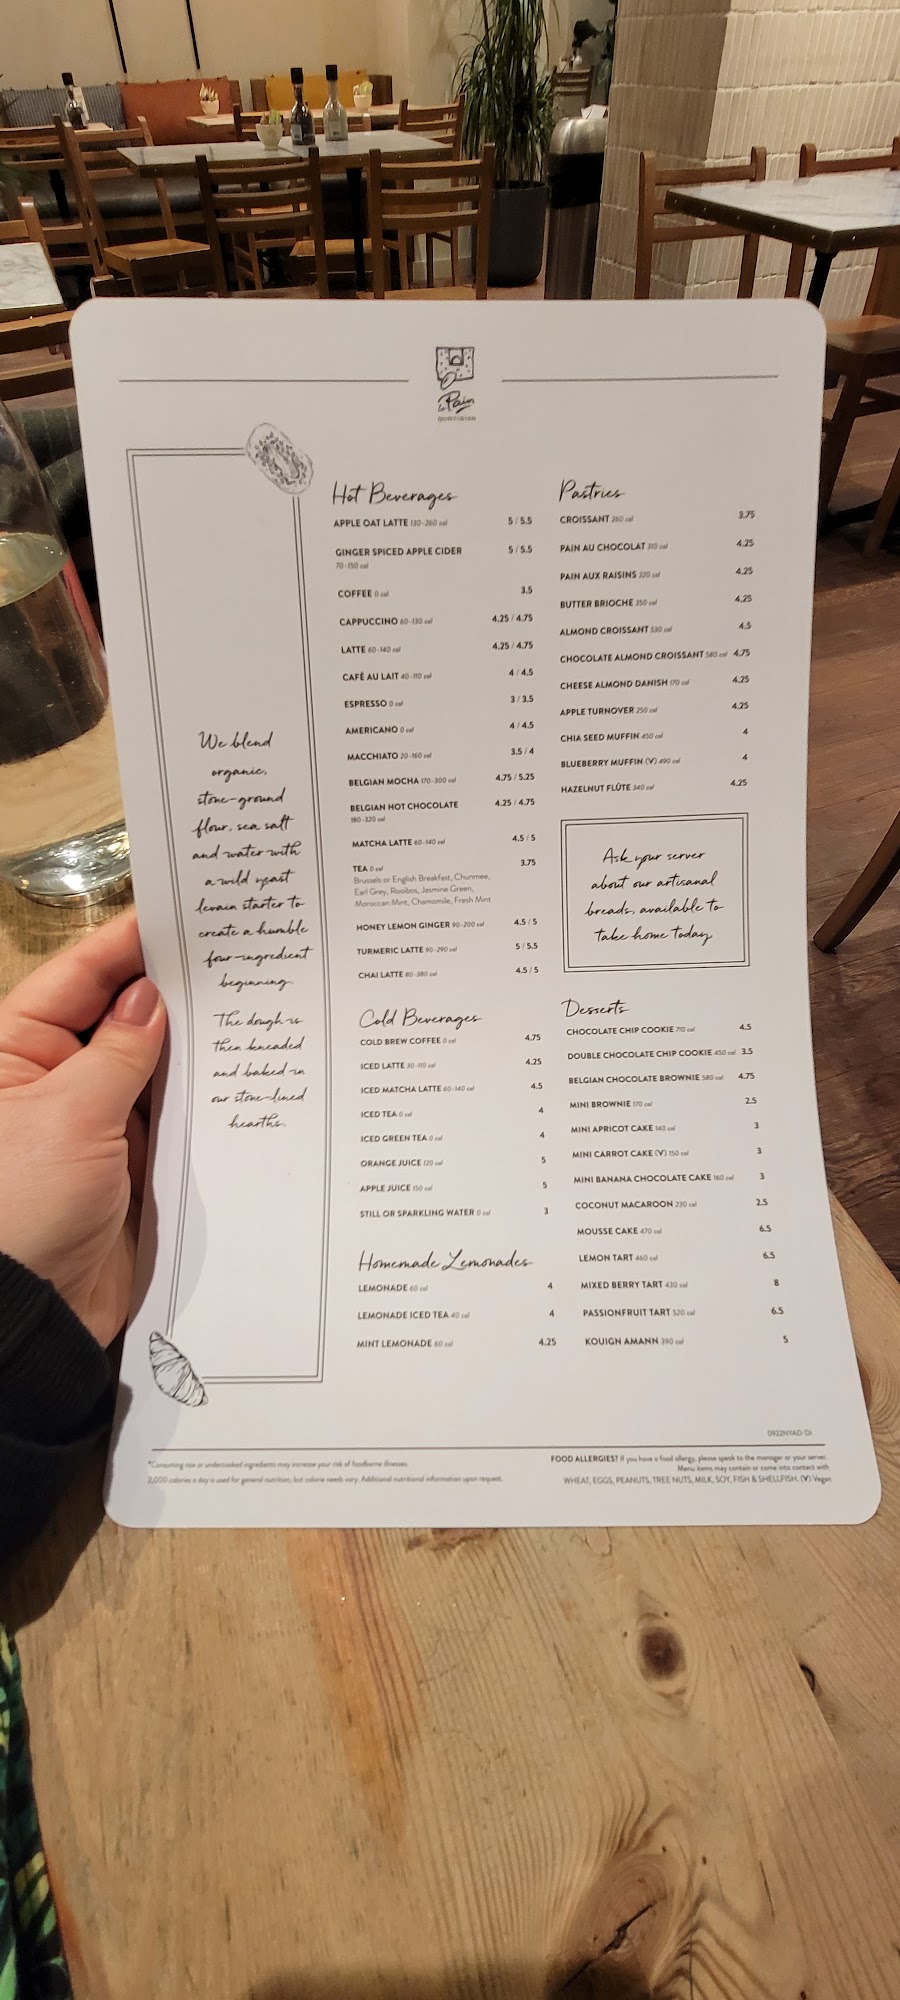 le Pain
We blend
organic,
stone-ground
flour, sea salt
and water with
a wild yeast
levain starter to
create a humble
four-ingredient
beginning.
The dough is
then kneaded
and baked in
our stone-lined
hearths.
Hot Beverages
APPLE OAT LATTE 130-260 cal 5 / 5.5
GINGER SPICED APPLE CIDER 5 / 5.5
70-150 cal
COFFEE 0 cal 3.5
CAPPUCCINO 60-130 cal 4.25 / 4.75
LATTE 60-140 cal 4.25 / 4.75
CAFÉ AU LAIT 40-110 cal 4 / 4.5
ESPRESSO 0 cal 3 / 3.5
AMERICANO 0 cal 4 / 4.5
MACCHIATO 20-160 cal 3.5 / 4
BELGIAN MOCHA 170-300 cal 4.75 / 5.25
BELGIAN HOT CHOCOLATE 4.25 / 4.75
180-320 cal
MATCHA LATTE 60-140 cal 4.5 / 5
TEA 0 cal 3.75
Brussels or English Breakfast, Chunmee,
Earl Grey, Rooibos, Jasmine Green,
Moroccan Mint, Chamomile, Fresh Mint
HONEY LEMON GINGER 90-200 cal 4.5 / 5
TURMERIC LATTE 90-290 cal 5 / 5.5
CHAI LATTE 80-380 cal 4.5 / 5
Cold Beverages
COLD BREW COFFEE 0 cal 4.75
ICED LATTE 30-110 cal 4.25
ICED MATCHA LATTE 60-140 cal 4.5
ICED TEA 0 cal 4
ICED GREEN TEA 0 cal 4
ORANGE JUICE 120 cal 5
APPLE JUICE 150 cal 5
STILL OR SPARKLING WATER 0 cal 3
Homemade Lemonades
LEMONADE 60 cal 4
LEMONADE ICED TEA 40 cal 4
MINT LEMONADE 60 cal 4.25
Pastries
CROISSANT 260 cal 3.75
PAIN AU CHOCOLAT 310 cal 4.25
PAIN AUX RAISINS 320 cal 4.25
BUTTER BRIOCHE 350 cal 4.25
ALMOND CROISSANT 530 cal 4.5
CHOCOLATE ALMOND CROISSANT 580 cal 4.75
CHEESE ALMOND DANISH 170 cal 4.25
APPLE TURNOVER 250 cal 4.25
CHIA SEED MUFFIN 450 cal 4
BLUEBERRY MUFFIN (V) 490 cal 4
HAZELNUT FLÛTE 340 cal 4.25
Ask your server
about our artisanal
breads, available to
take home today.
Desserts
CHOCOLATE CHIP COOKIE 710 cal 4.5
DOUBLE CHOCOLATE CHIP COOKIE 450 cal 3.5
BELGIAN CHOCOLATE BROWNIE 580 cal 4.75
MINI BROWNIE 170 cal 2.5
MINI APRICOT CAKE 140 cal 3
MINI CARROT CAKE (V) 150 cal 3
MINI BANANA CHOCOLATE CAKE 160 cal 3
COCONUT MACAROON 230 cal 2.5
MOUSSE CAKE 470 cal 6.5
LEMON TART 460 cal 6.5
MIXED BERRY TART 430 cal 8
PASSIONFRUIT TART 520 cal 6.5
KOUIGN AMANN 390 cal 5
0922NYAD-DI
*Consuming raw or undercooked ingredients may increase your risk of foodborne illnesses.
2,000 calories a day is used for general nutrition, but calorie needs vary. Additional nutritional information upon request.
FOOD ALLERGIES? If you have a food allergy, please speak to the manager or your server.
Menu items may contain or come into contact with
WHEAT, EGGS, PEANUTS, TREE NUTS, MILK, SOY, FISH & SHELLFISH. (V) Vegan